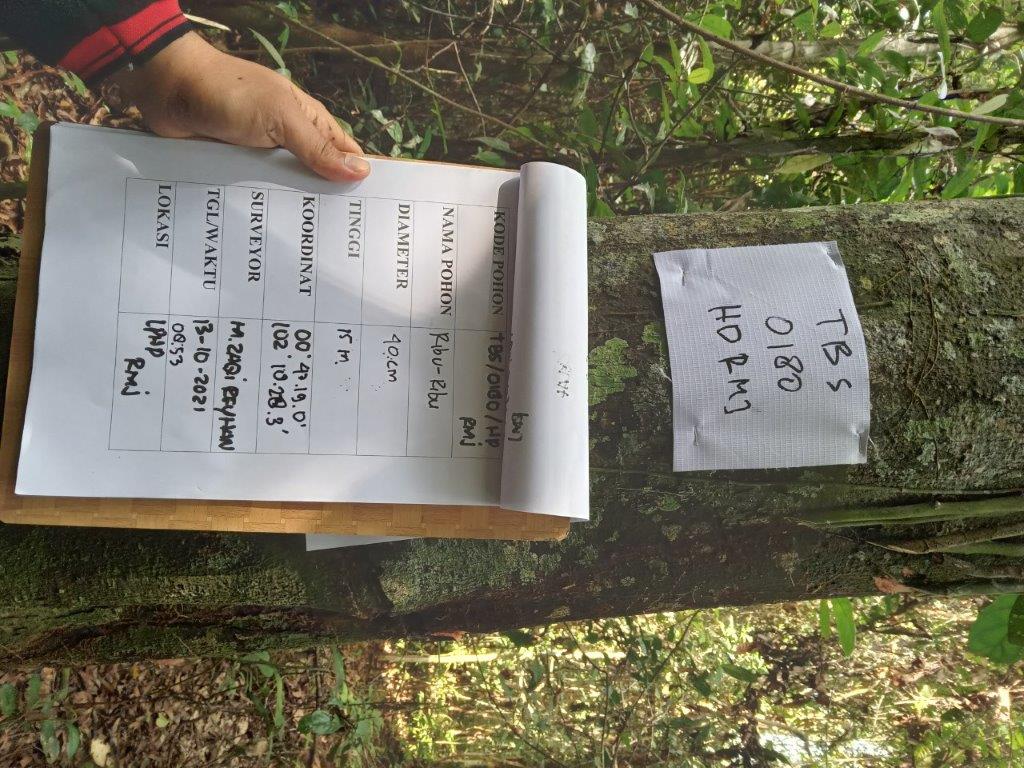 TBS
0180
HO RMJ
KODE POHON TBS/0180/HP RMJ
NAMA POHON Ribu-Ribu
DIAMETER 40.cm
TINGGI 15 m.
KOORDINAT 00° 47.19.0'
102° 10.28.3'
SURVEYOR M. ZAQI REYHAN
TGL/WAKTU 13-10-2021
08:53
LOKASI LPHD RMJ